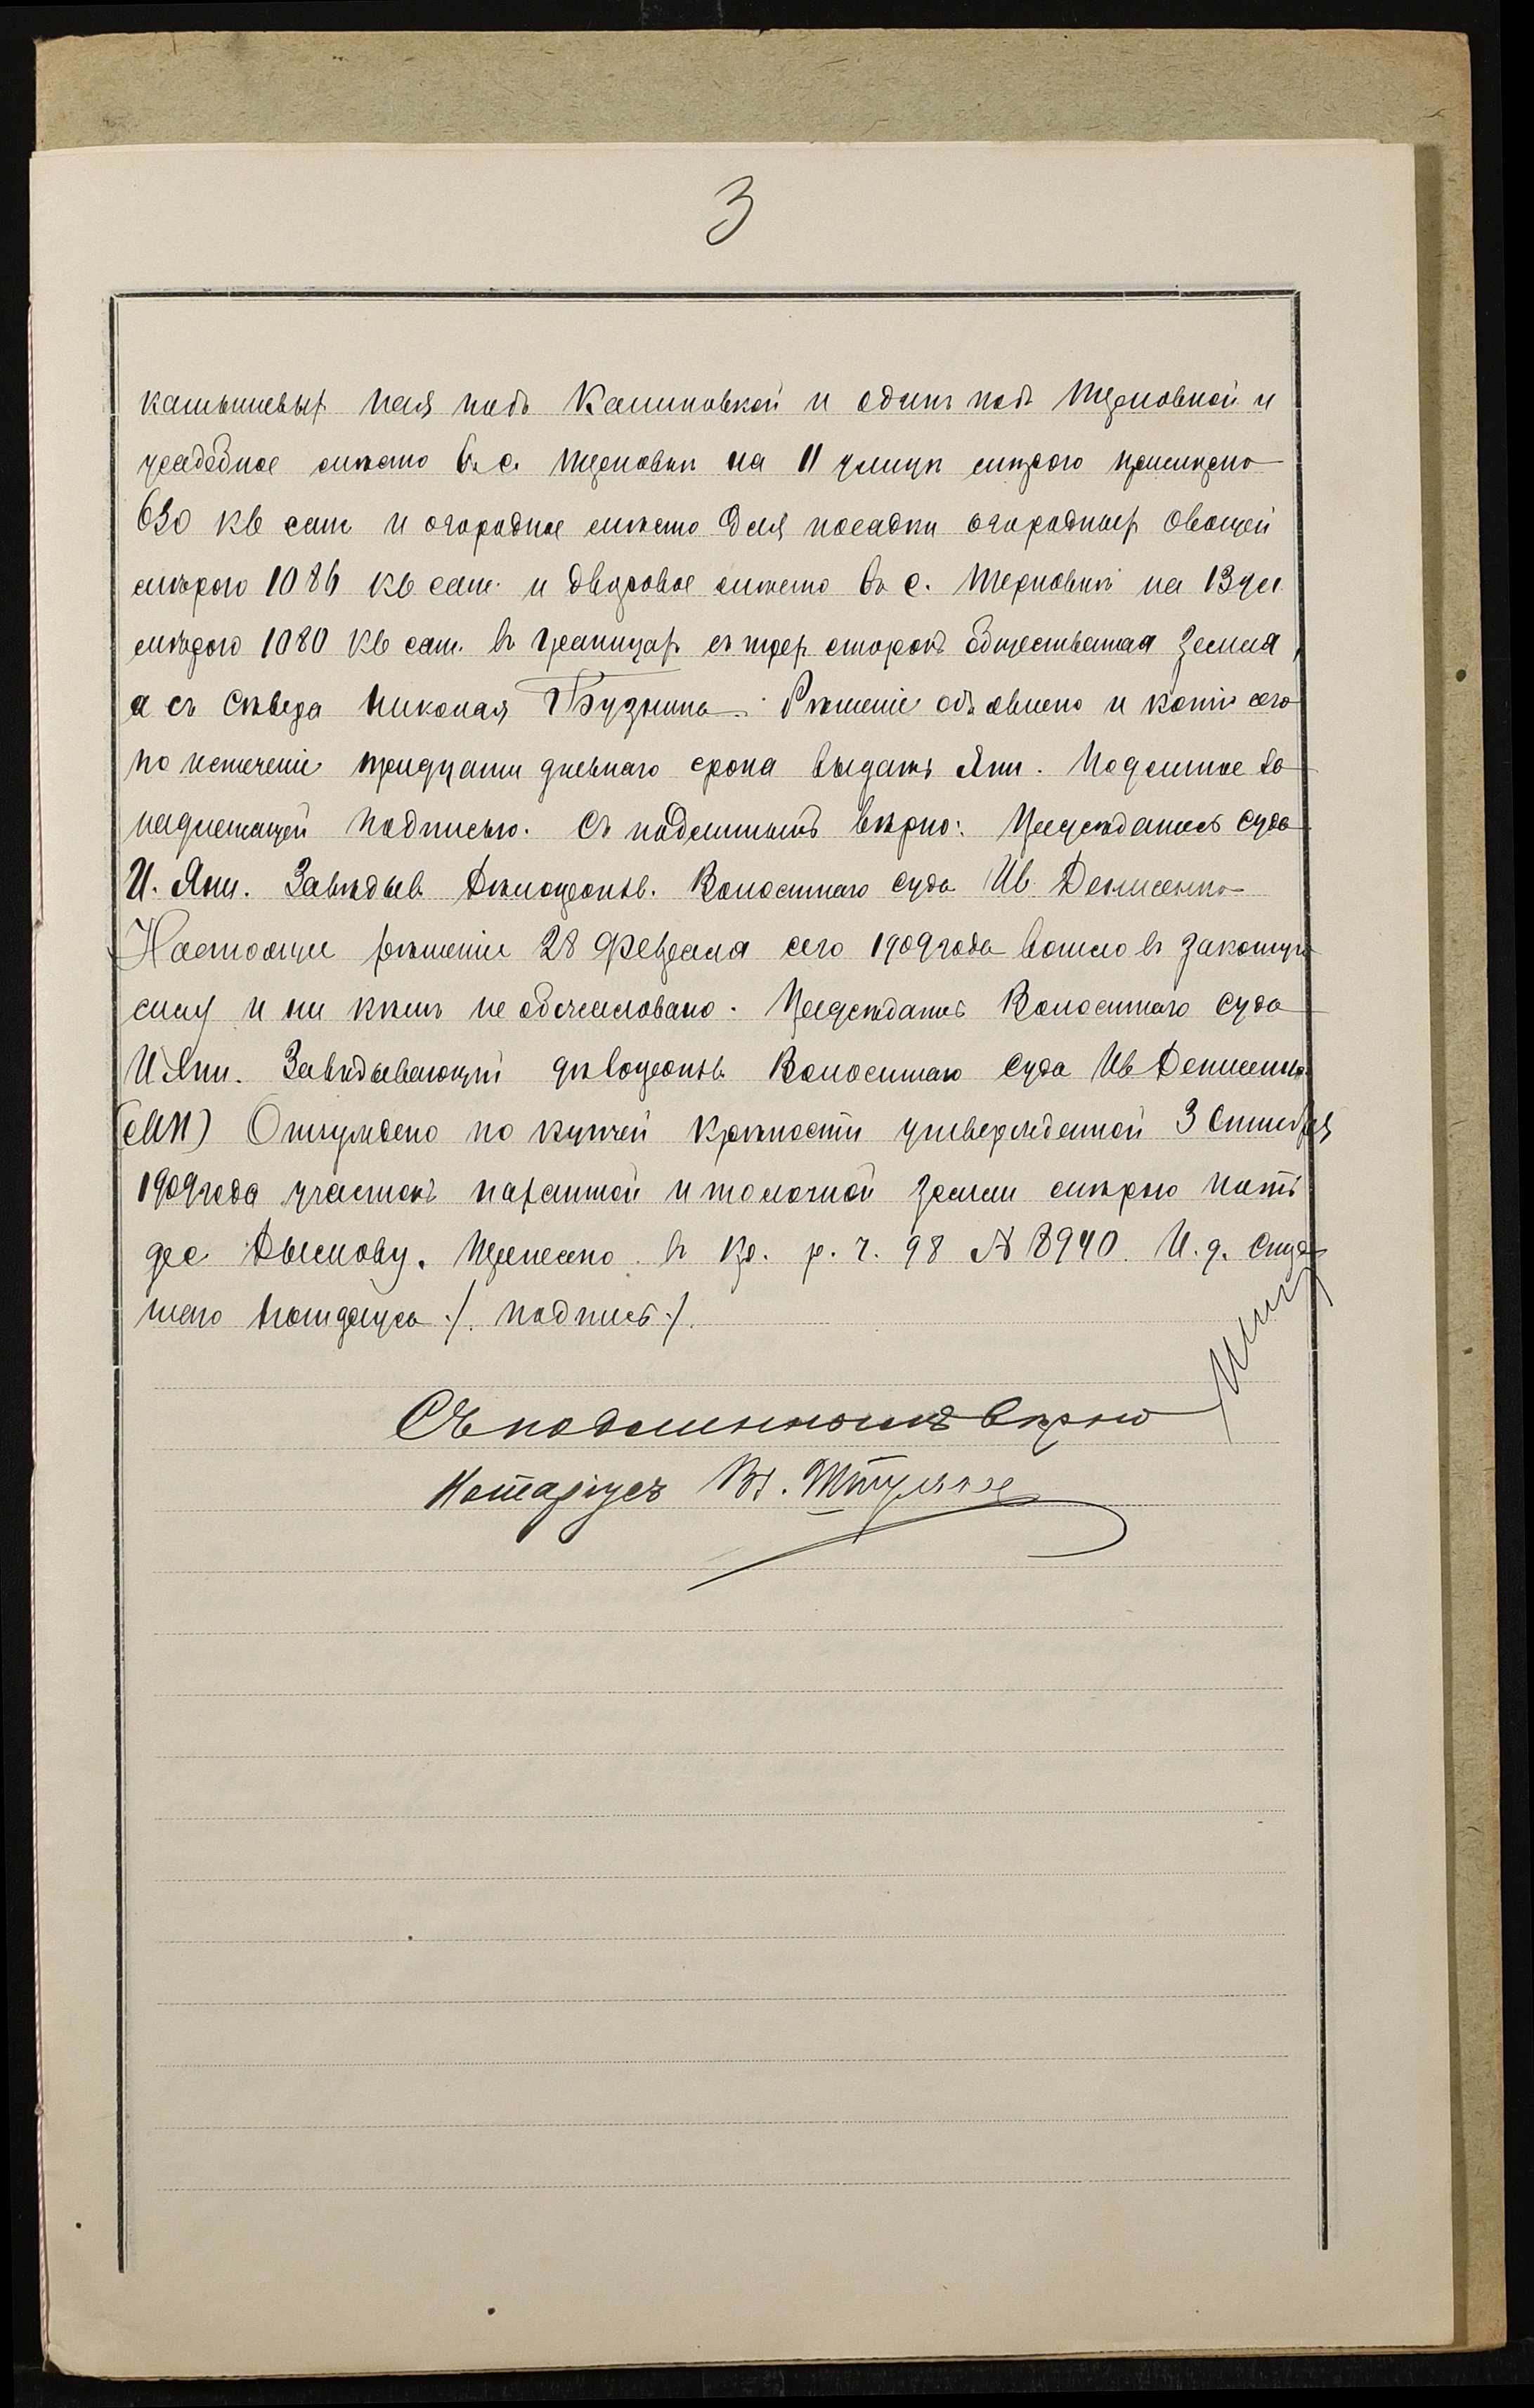 3
камышевыхъ пая подъ Калиновкой и одинъ подъ Терновкой и
усадебное мѣсто въ с. Терновкѣ на 11 улицѣ мѣрою
630 кв саж и огородное мѣсто для посадки огородныхъ овощей
мѣрою 1086 кв саж. и дворовое мѣсто въ с. Терновкѣ на 13 ул
мѣрою 1080 кв саж. въ границахъ съ трехъ сторонъ общественная земля,
а съ сѣвера Николая Рѣшеніе объявлено и копію сего
по истеченіи тридцати дневнаго срока выдать Яни. Подлинное за
надлежащей подписью. Съ подлиннымъ вѣрно: Предсѣдатель суда
И. Яни. Завѣдыв. дѣлопроизв. Волостнаго суда Ив. Денисенко
Настоящее рѣшеніе 28 Февраля сего 1909 года вошло въ законную
силу и ни кѣмъ не обжаловано. Предсѣдатель Волостнаго суда
И Яни. Завѣдывающій дѣлопроизв. Волостнаго суда Ив Денисенко
(МП) Отчуждено по купчей крѣпости утвержденной 3 Сентября
1909 года участокъ пахатной и толочной земли мѣрою пять
дес Дымову. Отмѣчено въ кр. р. ч. 98 № 8940. И. д. Стар
шаго Нотаріуса ./. подпись ./.
Съ подлиннымъ вѣрно
Нотаріусъ Вл.